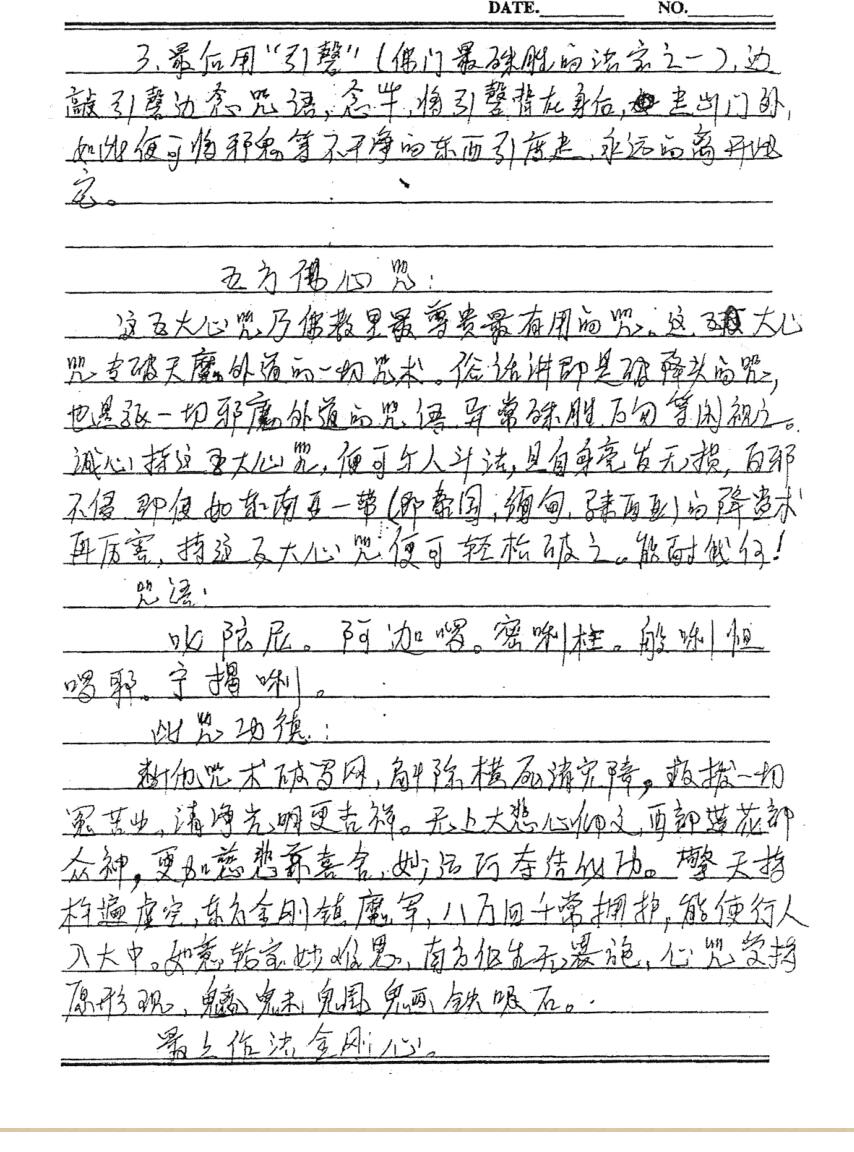 DATE. NO.
3、最后用“引磬”(佛门最殊胜的法宝之一),边
敲引磬边念咒语,念毕,将引磬背在身后,走出门外,
如此便可将邪鬼等不干净的东西引度走,永远的离开此
宅。
五方佛心咒:
这五大心咒乃佛教里最尊贵最有用的咒。这五大心
咒专破天魔外道的一切咒术。俗话讲即是破降头的咒,
也是驱一切邪魔外道的咒语,异常殊胜,万勿等闲视之。
诚心持这五大心咒,便可与人斗法,且自身毫发无损,百邪
不侵。即便如东南亚一带(即泰国,缅甸,马来西亚)的降头术
再厉害,持这五大心咒便可轻松破之。能耐我何!
咒语:
吽陀尼。阿迦㖿。密唎柱。般唎怛
㖿耶。宁揭唎。
此咒功德:
断他咒术破罗网,解除横死消灾障,救拔一切
冤苦业,清净光明更吉祥。无上大悲心佛文,西部莲花部
众神,更加慈悲兼喜舍,妙法阿奈结似功。擎天持
杵遍虚空,东方金刚镇魔军,八万四千常拥护,能使行人
入大中。如意轮宝妙难思,南方化生无畏施,心咒受持
原形现,魑魅魍魉铁吸石。
最上作法金刚心。